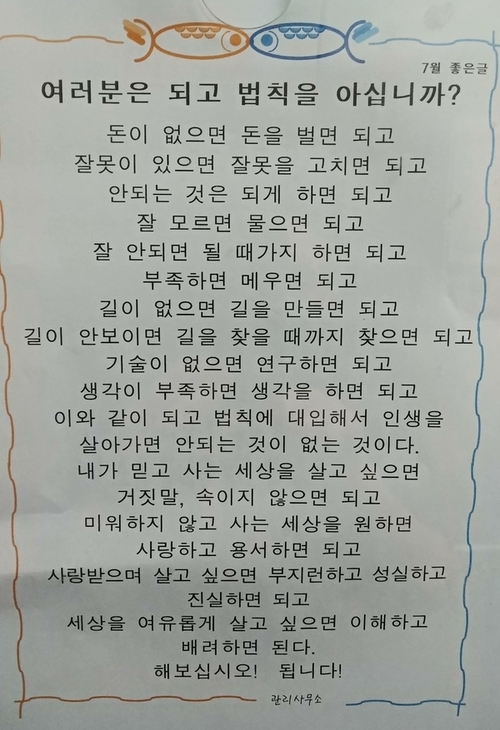 7월 좋은글
여러분은 되고 법칙을 아십니까?
돈이 없으면 돈을 벌면 되고
잘못이 있으면 잘못을 고치면 되고
안되는 것은 되게 하면 되고
잘 모르면 물으면 되고
잘 안되면 될 때가지 하면 되고
부족하면 메우면 되고
길이 없으면 길을 만들면 되고
길이 안보이면 길을 찾을 때까지 찾으면 되고
기술이 없으면 연구하면 되고
생각이 부족하면 생각을 하면 되고
이와 같이 되고 법칙에 대입해서 인생을
살아가면 안되는 것이 없는 것이다.
내가 믿고 사는 세상을 살고 싶으면
거짓말, 속이지 않으면 되고
미워하지 않고 사는 세상을 원하면
사랑하고 용서하면 되고
사랑받으며 살고 싶으면 부지런하고 성실하고
진실하면 되고
세상을 여유롭게 살고 싶으면 이해하고
배려하면 된다.
해보십시오! 됩니다!
관리사무소